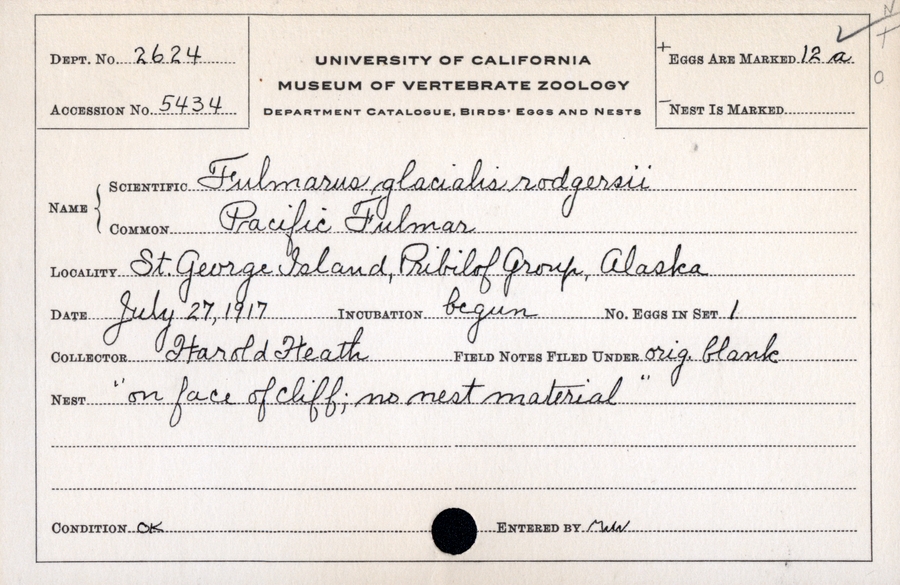 Dept. No. 2624
Accession No. 5434
UNIVERSITY OF CALIFORNIA
MUSEUM OF VERTEBRATE ZOOLOGY
Department Catalogue, Birds' Eggs and Nests
+ Eggs Are Marked 12 a
- Nest Is Marked
N
+
O
Name
Scientific Fulmarus glacialis rodgersii
Common Pacific Fulmar
Locality St. George Island, Pribilof Group, Alaska
Date July 27, 1917 Incubation begun No. Eggs in Set 1
Collector Harold Heath Field Notes Filed Under orig. blank
Nest "on face of cliff; no nest material"
Condition OK Entered by